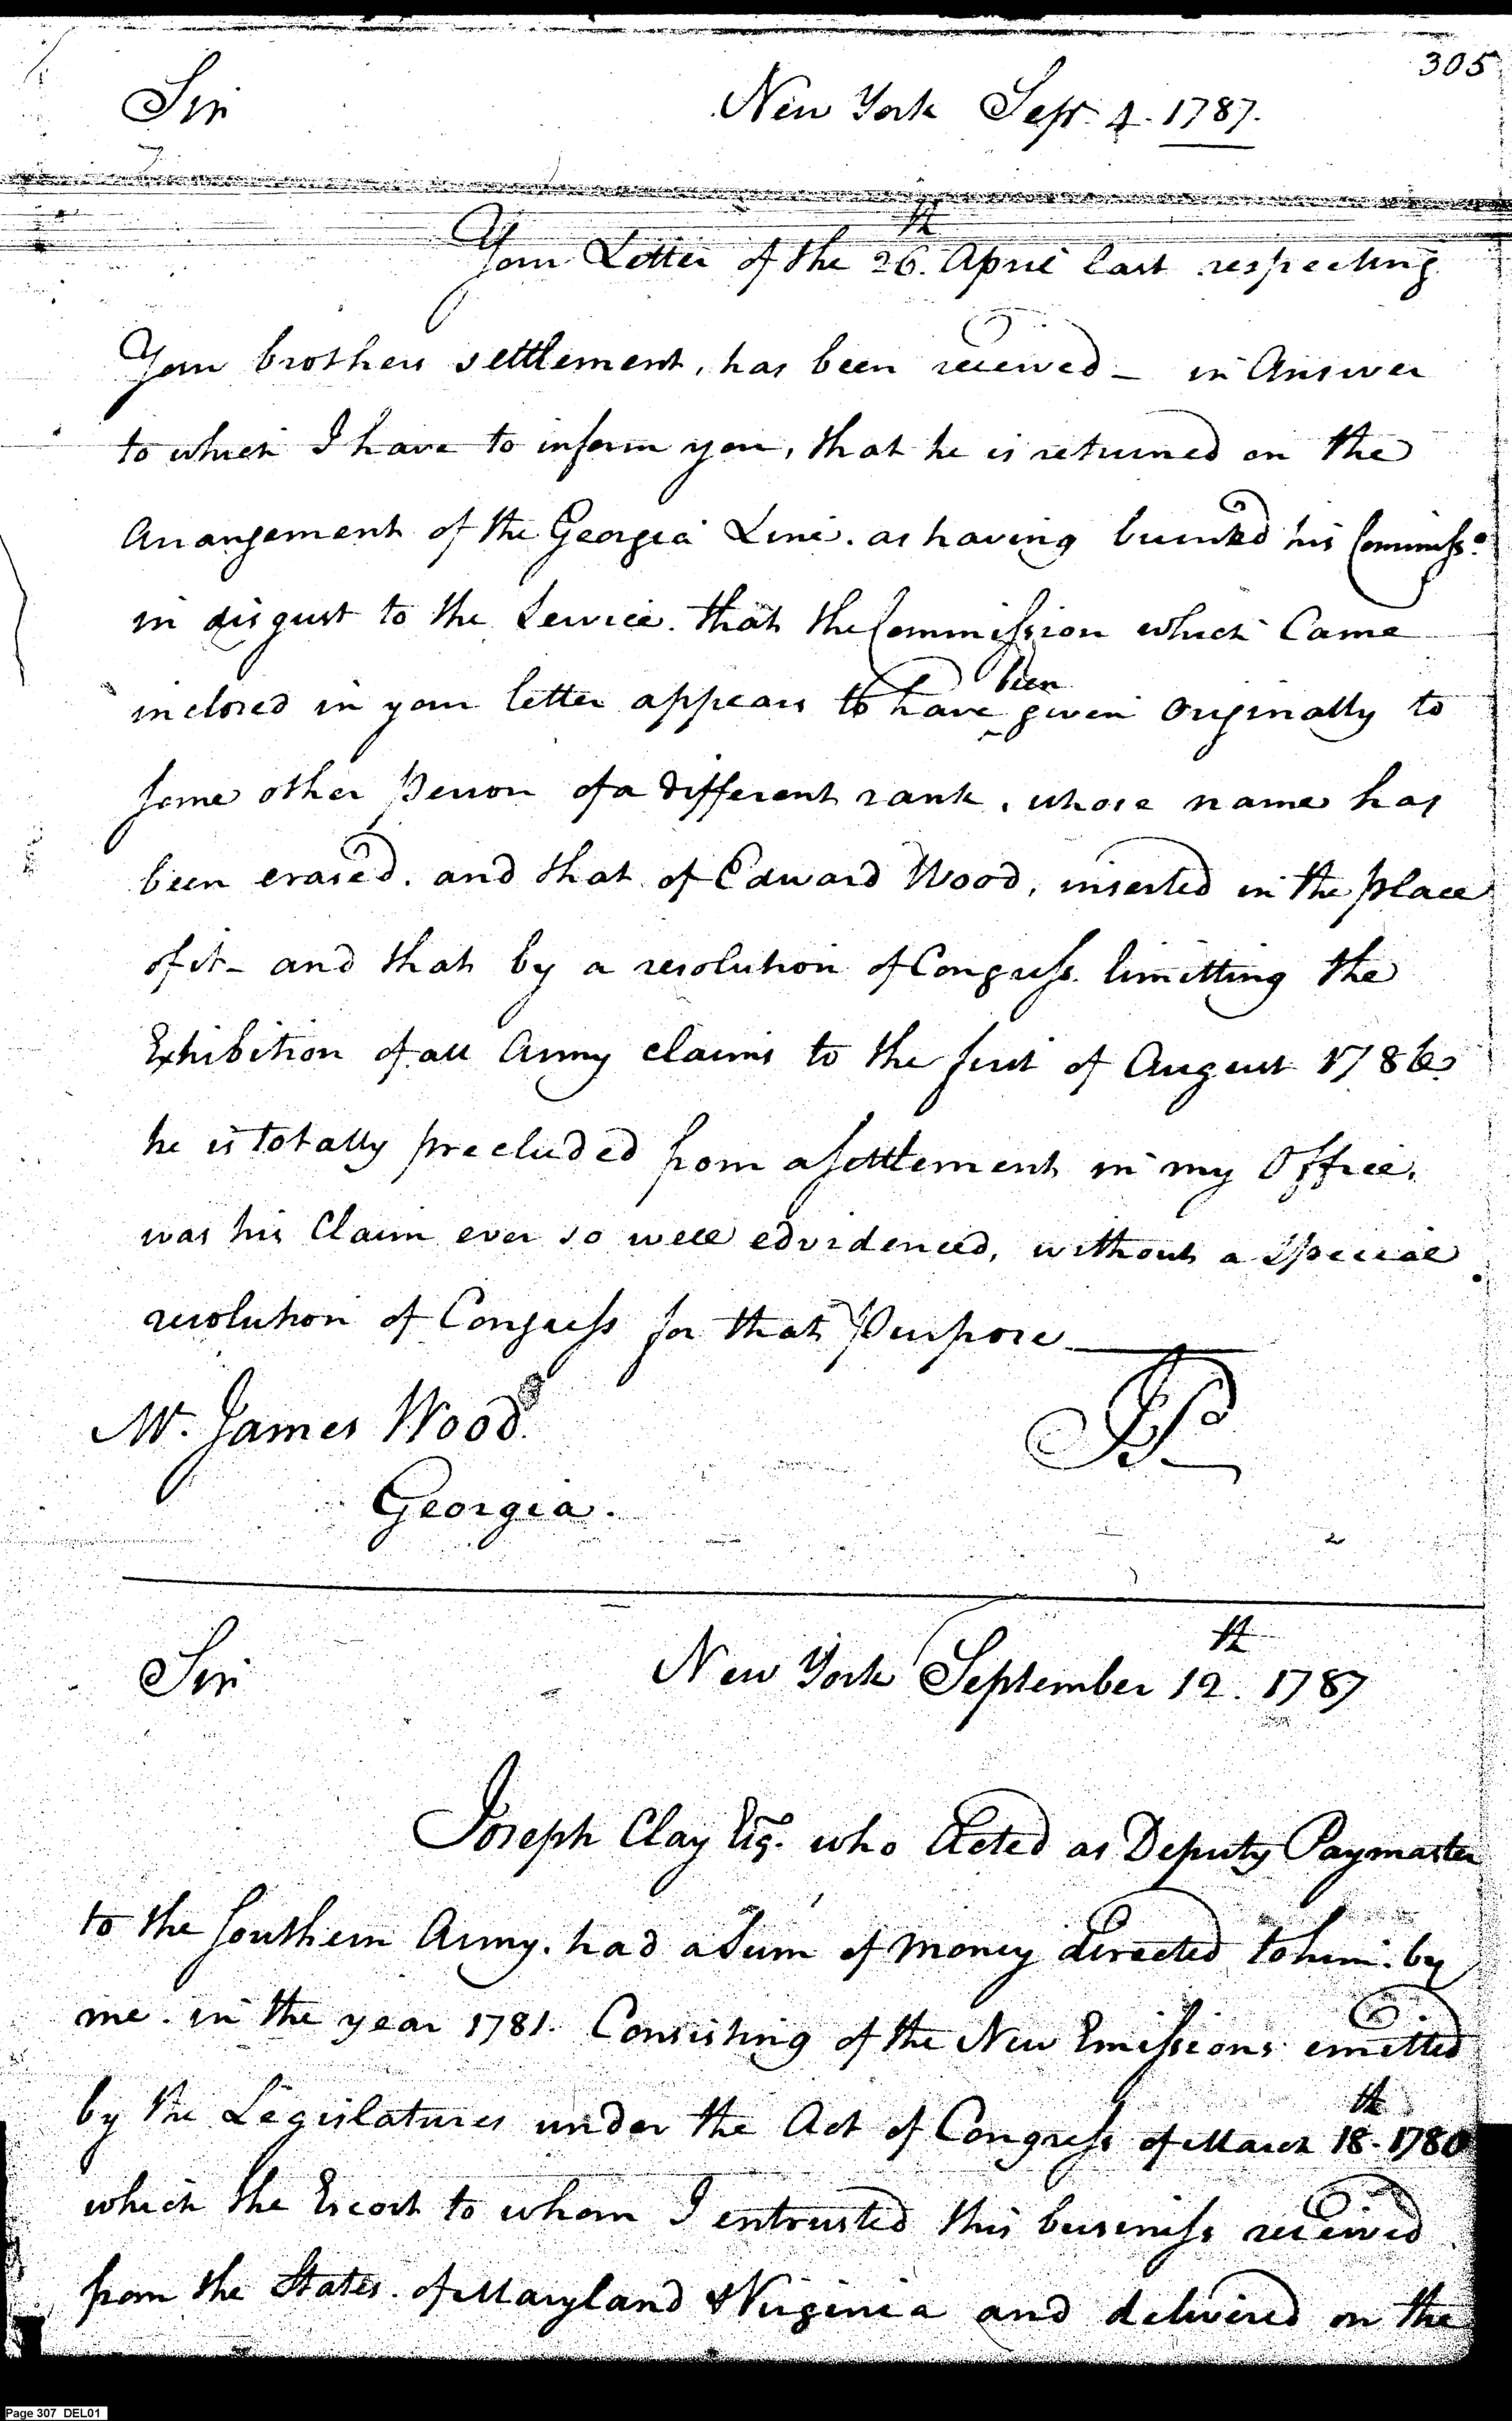 305
Sir New York Sepr. 4. 1787.
Your Letter of the 26th. April last respecting
Your brothers settlement, has been received – in Answer
to which I have to inform you, that he is returned on the
Arrangement of the Georgia Line. as having burned his Commisso.
in disgust to the Service. that the Commission which Came
inclosed in your letter appears to have ^been given Originally to
some other Person of a different rank, whose name has
been erased. and that of Edward Wood, inserted in the place
of it – and that by a resolution of Congress. limitting the
Exhibition of all Army claims to the first of August 1786.
he is totally precluded from a settlement in my Office.
was his Claim ever so well edvidenced, without a Special
resolution of Congress for that Purpose
Mr. James Wood. JP
Georgia.
Sir New York September 12th. 1787
Joseph Clay Esqr. who Acted as Deputy Paymaster
to the Southern Army. had a Sum of Money directed to him. by
me. in the year 1781. Consisting of the New Emissions emitted
by the Legislatures under the Act of Congress of March 18th. 1780
which the Escort to whom I entrusted this business received
from the States. of Maryland & Virginia and delivered on the
Page 307 DEL01